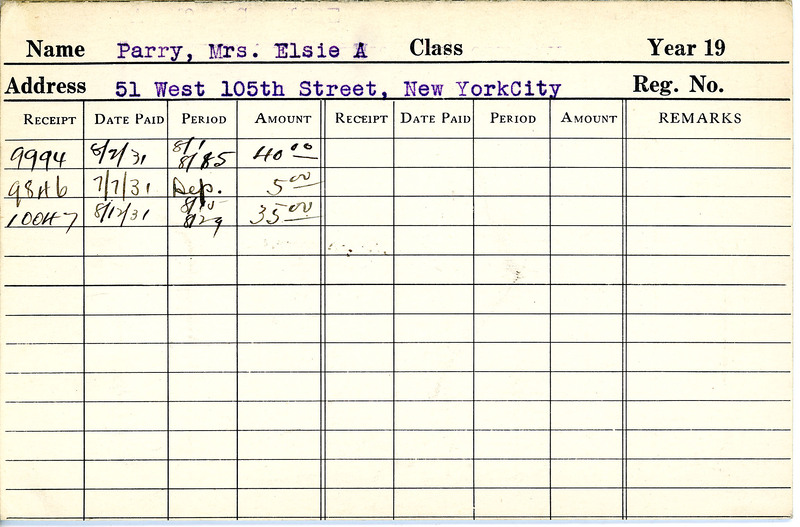 Name Parry, Mrs. Elsie A Class Year 19
Address 51 West 105th Street, New YorkCity Reg. No.
RECEIPT DATE PAID PERIOD AMOUNT RECEIPT DATE PAID PERIOD AMOUNT REMARKS
9994 8/2/31 8/1 8/85 40 00
9846 7/7/31 Dep. 5 00
10047 8/12/31 8/15 8/29 35 00